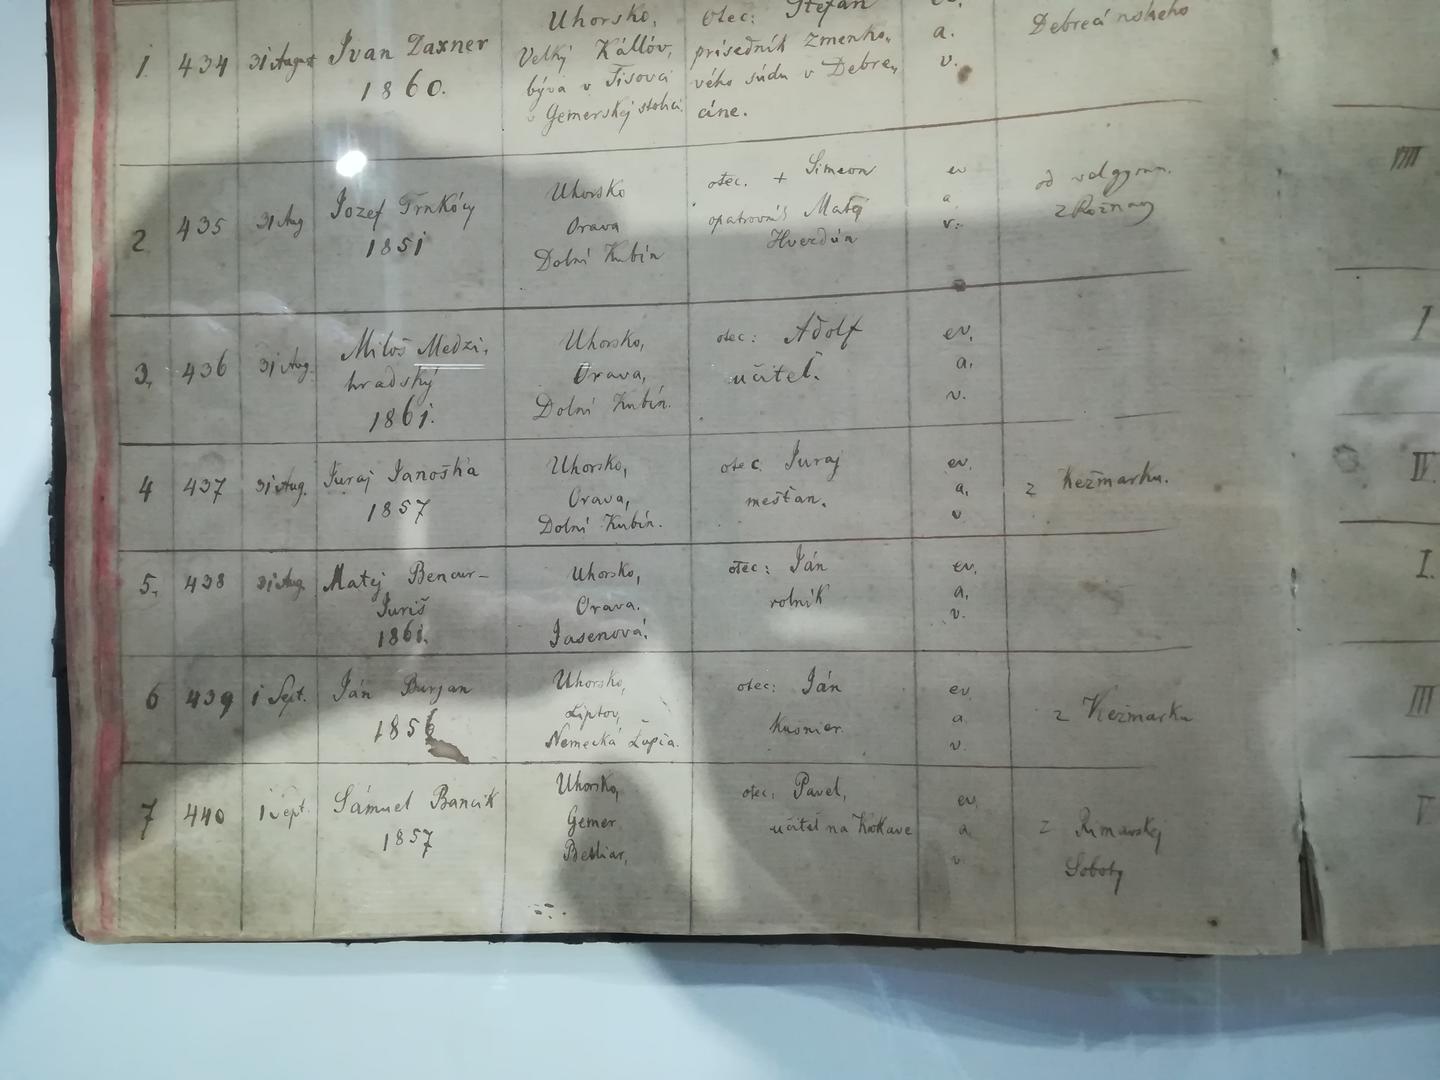 1. 434 31 August Ivan Daxner 1860.
Uhorsko,
Velký Kállóv,
býva v Tisovci
v Gemerskej stolici
Otec: Štefan
prísedník zmenko,
vého súdu v Debre,,
cíne.
ev.
a.
v.
Debrecínskeho
2 435 31 Aug Jozef Trnkócy
1851
Uhorsko
Orava
Dolní Kubín
otec. + Simeon
opatrovník Matej
Hvezdúň
ev
a
v.
od real gymn.
z Rožňavy
VIII
3, 436 31 Aug. Miloš Medzi,
hradský
1861.
Uhorsko,
Orava,
Dolní Kubín.
otec: Adolf
učiteľ.
ev,
a,
v.
I
4 437 31 Aug. Juraj Janoška
1857
Uhorsko,
Orava,
Dolní Kubín.
otec. Juraj
mešťan.
ev.
a,
v
z Kežmarku.
IV.
5, 438 31 Aug. Matej Bencur-
Juriš
1861.
Uhorsko,
Orava.
Jasenová.
otec: Ján
rolník
ev,
a,
v.
I.
6 439 1 Sept. Ján Burjan
1856
Uhorsko,
Liptov,
Nemecká Ľupča.
otec: Ján
kušnier.
ev
a
v.
z Kežmarku
III
7 440 1 Sept. Sámuel Bancik
1857
Uhorsko,
Gemer
Betliar,
otec: Pavel,
učiteľ na Kokave
ev,
a
v
z Rimavskej
Soboty
V